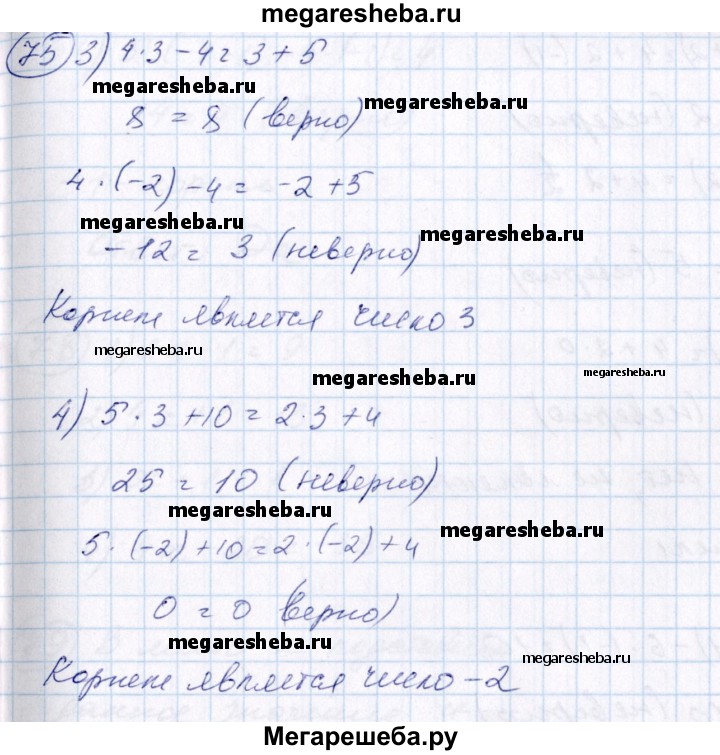 megaresheba.ru
75 3) 4·3-4=3+5
megaresheba.ru
megaresheba.ru
8 = 8 (верно)
4·(-2)-4=-2+5
megaresheba.ru
megaresheba.ru
-12= 3 (неверно)
Корнем является число 3
megaresheba.ru
megaresheba.ru
megaresheba.ru
4) 5·3+10=2·3+4
25=10 (неверно)
megaresheba.ru
megaresheba.ru
5·(-2)+10=2·(-2)+4
0=0 (верно)
megaresheba.ru
megaresheba.ru
Корнем является число -2
Мегарешеба.ру